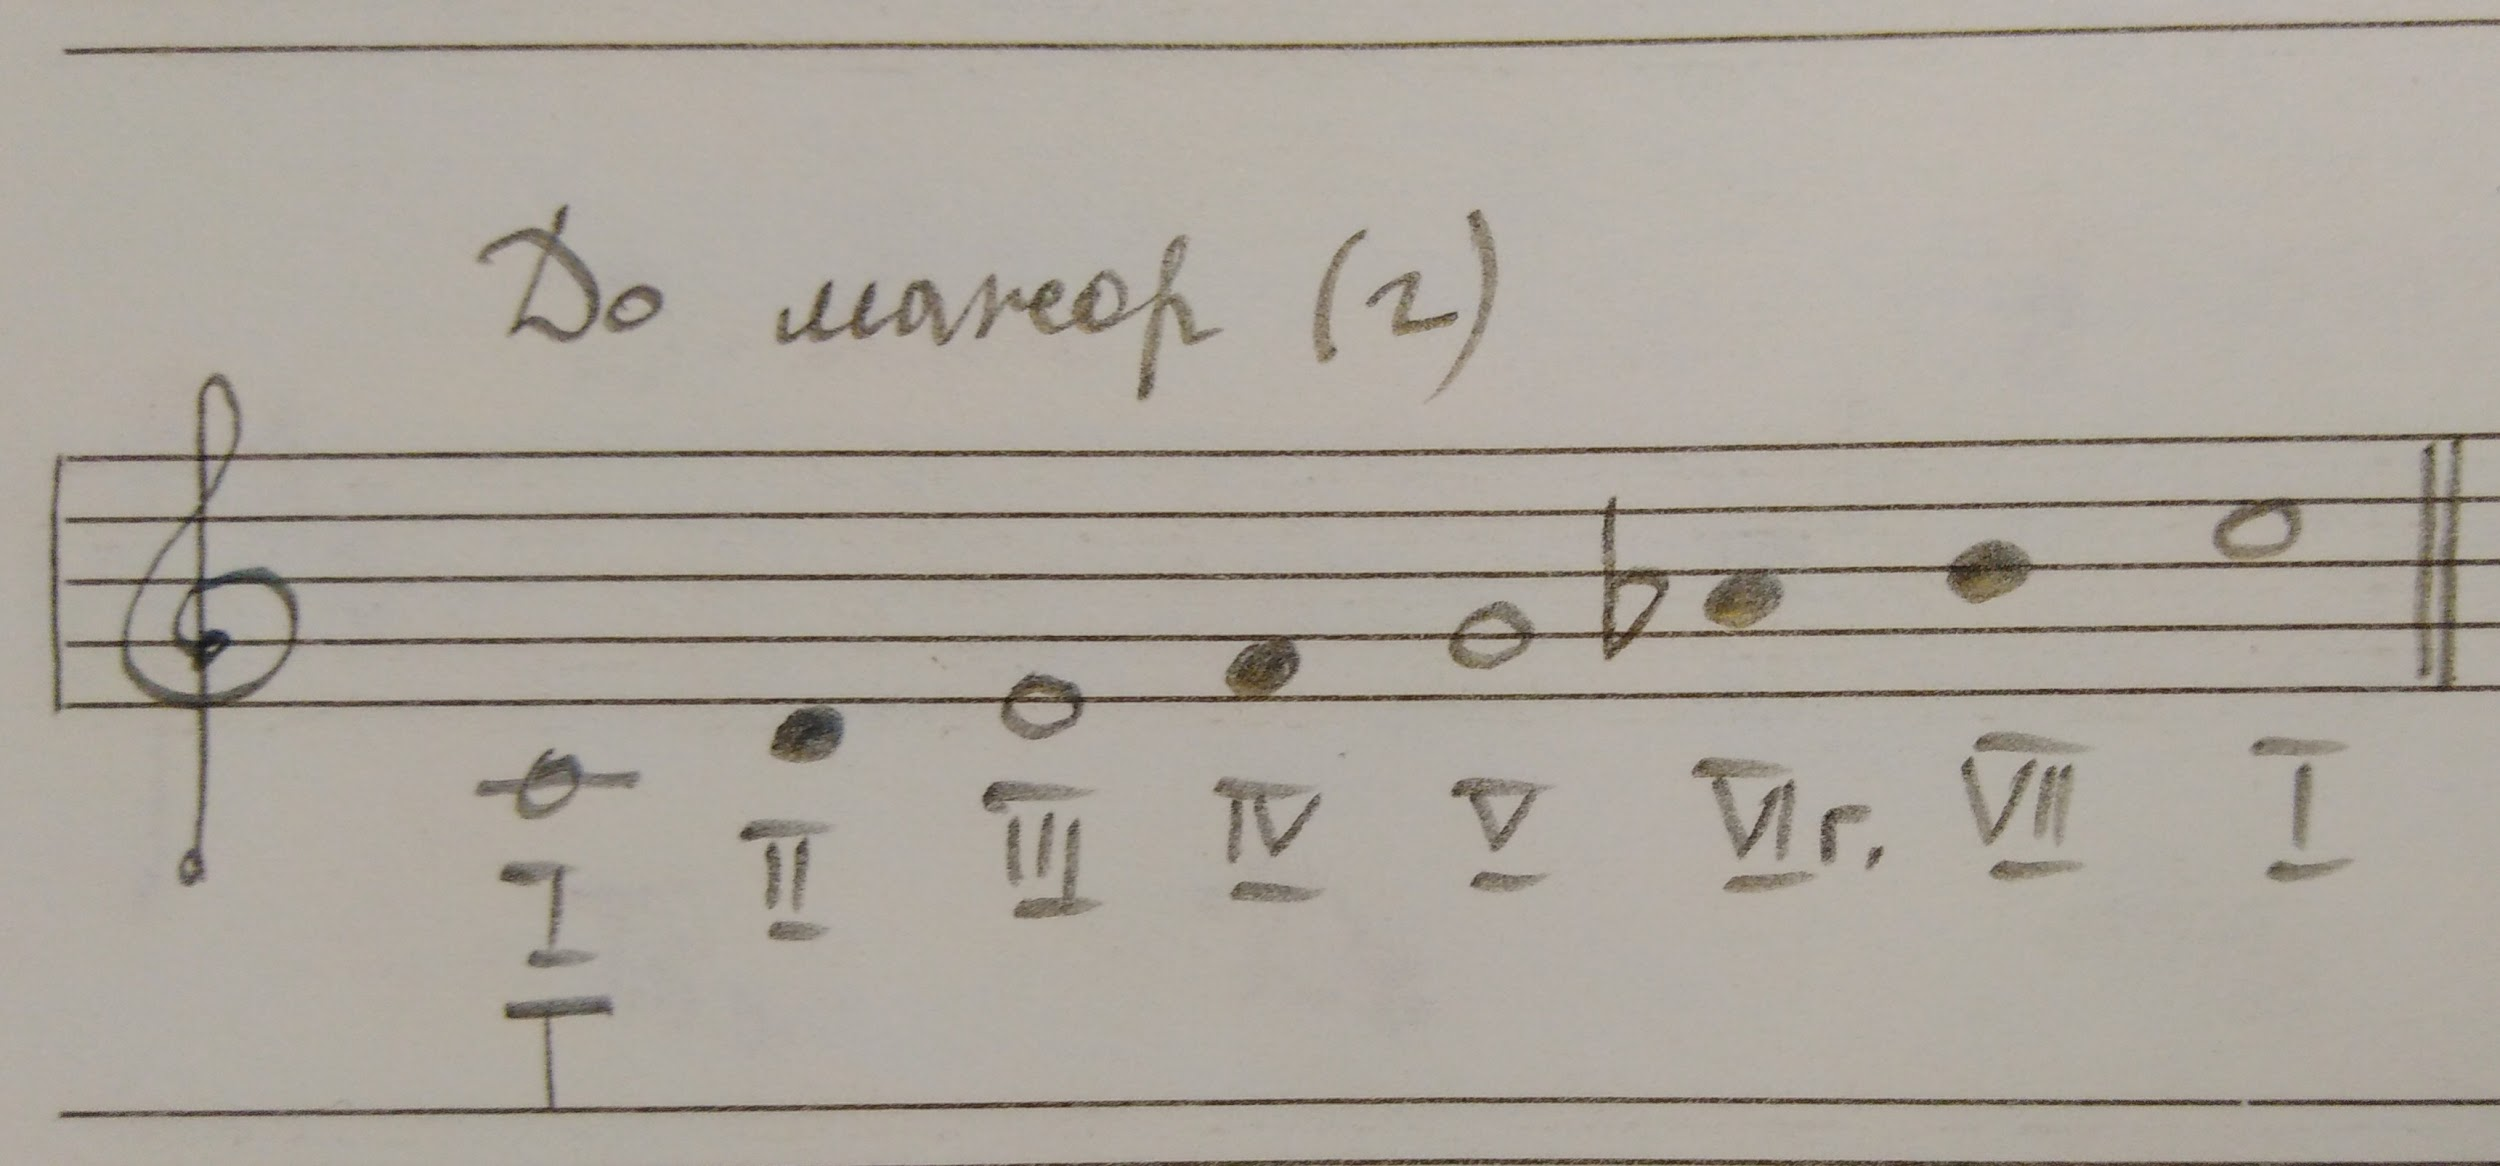 До мажор (г)
I II III IV V VIг. VII I
T